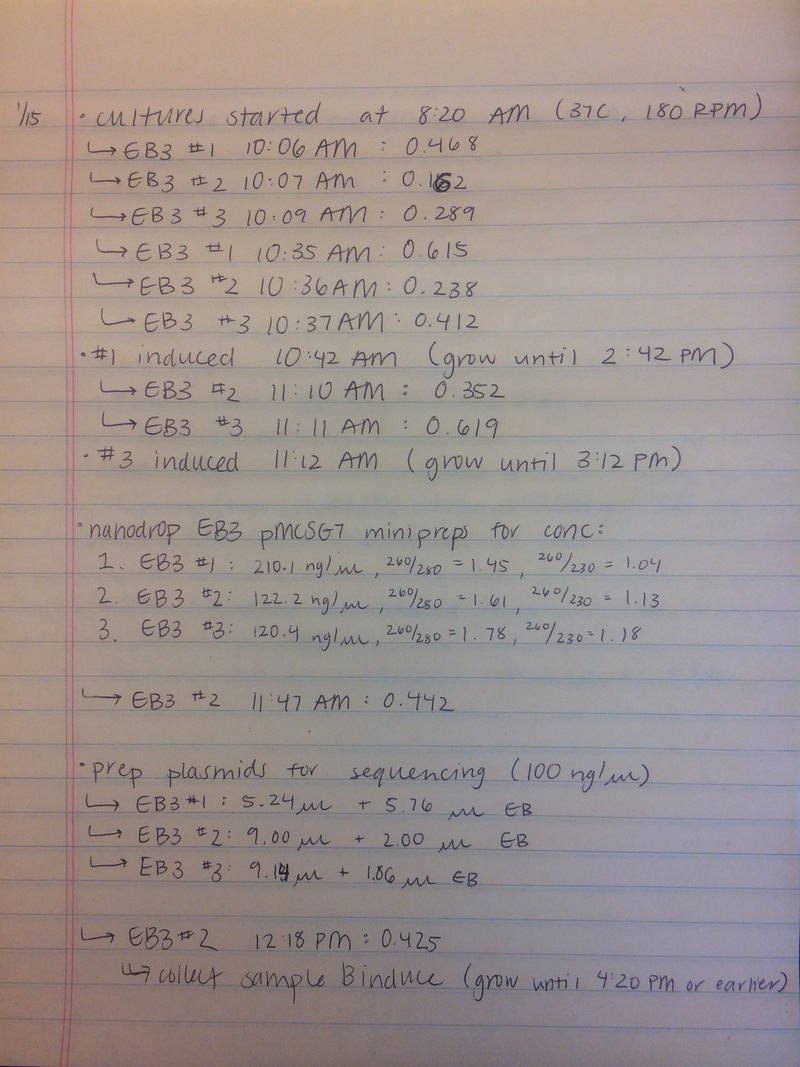 1/15 • cultures started at 8:20 AM (37C, 180 RPM)
↳ EB3 #1 10:06 AM : 0.468
↳ EB3 #2 10:07 AM : 0.162
↳ EB3 #3 10:09 AM : 0.289
↳ EB3 #1 10:35 AM : 0.615
↳ EB3 #2 10:36 AM : 0.238
↳ EB3 #3 10:37 AM : 0.412
• #1 induced 10:42 AM (grow until 2:42 PM)
↳ EB3 #2 11:10 AM : 0.352
↳ EB3 #3 11:11 AM : 0.619
• #3 induced 11:12 AM (grow until 3:12 PM)
• nanodrop EB3 pMCSG7 minipreps for conc:
1. EB3 #1 : 210.1 ng/µL, 260/280 = 1.45, 260/230 = 1.04
2. EB3 #2: 122.2 ng/µL, 260/280 = 1.61, 260/230 = 1.13
3. EB3 #3: 120.4 ng/µL, 260/280 = 1.78, 260/230 = 1.18
↳ EB3 #2 11:47 AM : 0.442
• prep plasmids for sequencing (100 ng/µL)
↳ EB3 #1 : 5.24 µL + 5.76 µL EB
↳ EB3 #2: 9.00 µL + 2.00 µL EB
↳ EB3 #3: 9.14 µL + 1.86 µL EB
↳ EB3 #2 12:18 PM : 0.425
↳ collect sample & induce (grow until 4:20 PM or earlier)